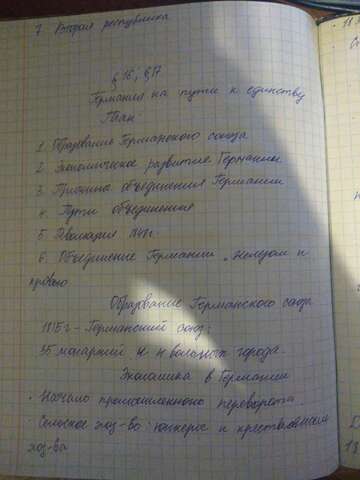 7. Вторая республика
§16; §17
Германия на пути к единству
План
1. Образование Германского союза
2. Экономическое развитие Германии
3. Причины объединения Германии
4. Пути объединения
5. Революция
6. Объединение Германии „железом и
кровью
Образование Германского союза
1815 г - Германский союз:
35 монархий и 4 вольных города.
Экономика в Германии
· Начало промышленного переворота.
· Сельское хоз-во: юнкерс и крестьянским
хоз-ва